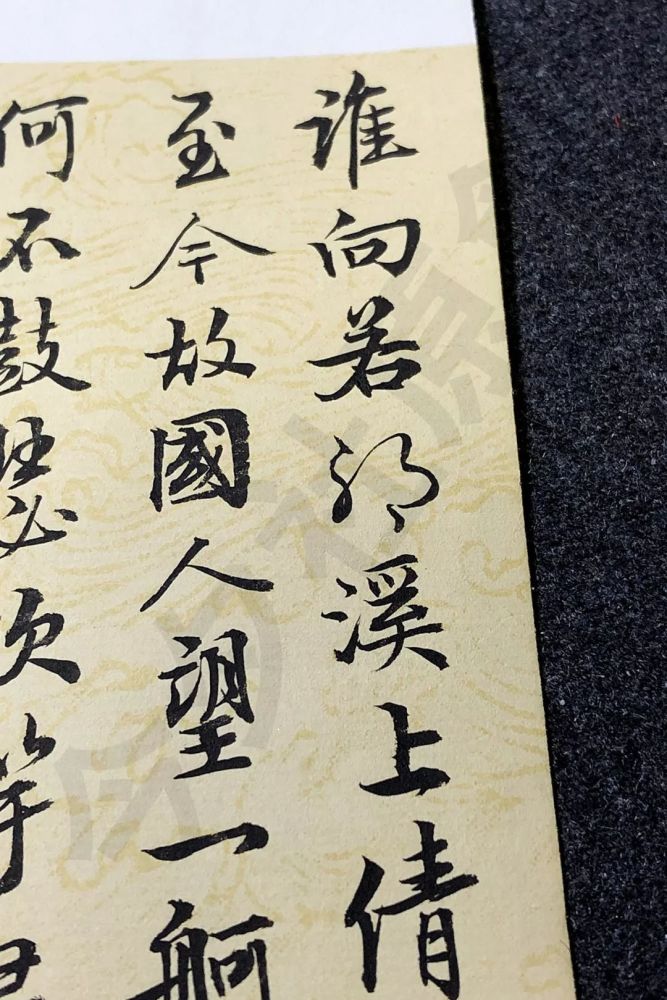 谁向若耶溪上倩
至今故國人望一舸
何不鼓瑟吹竽